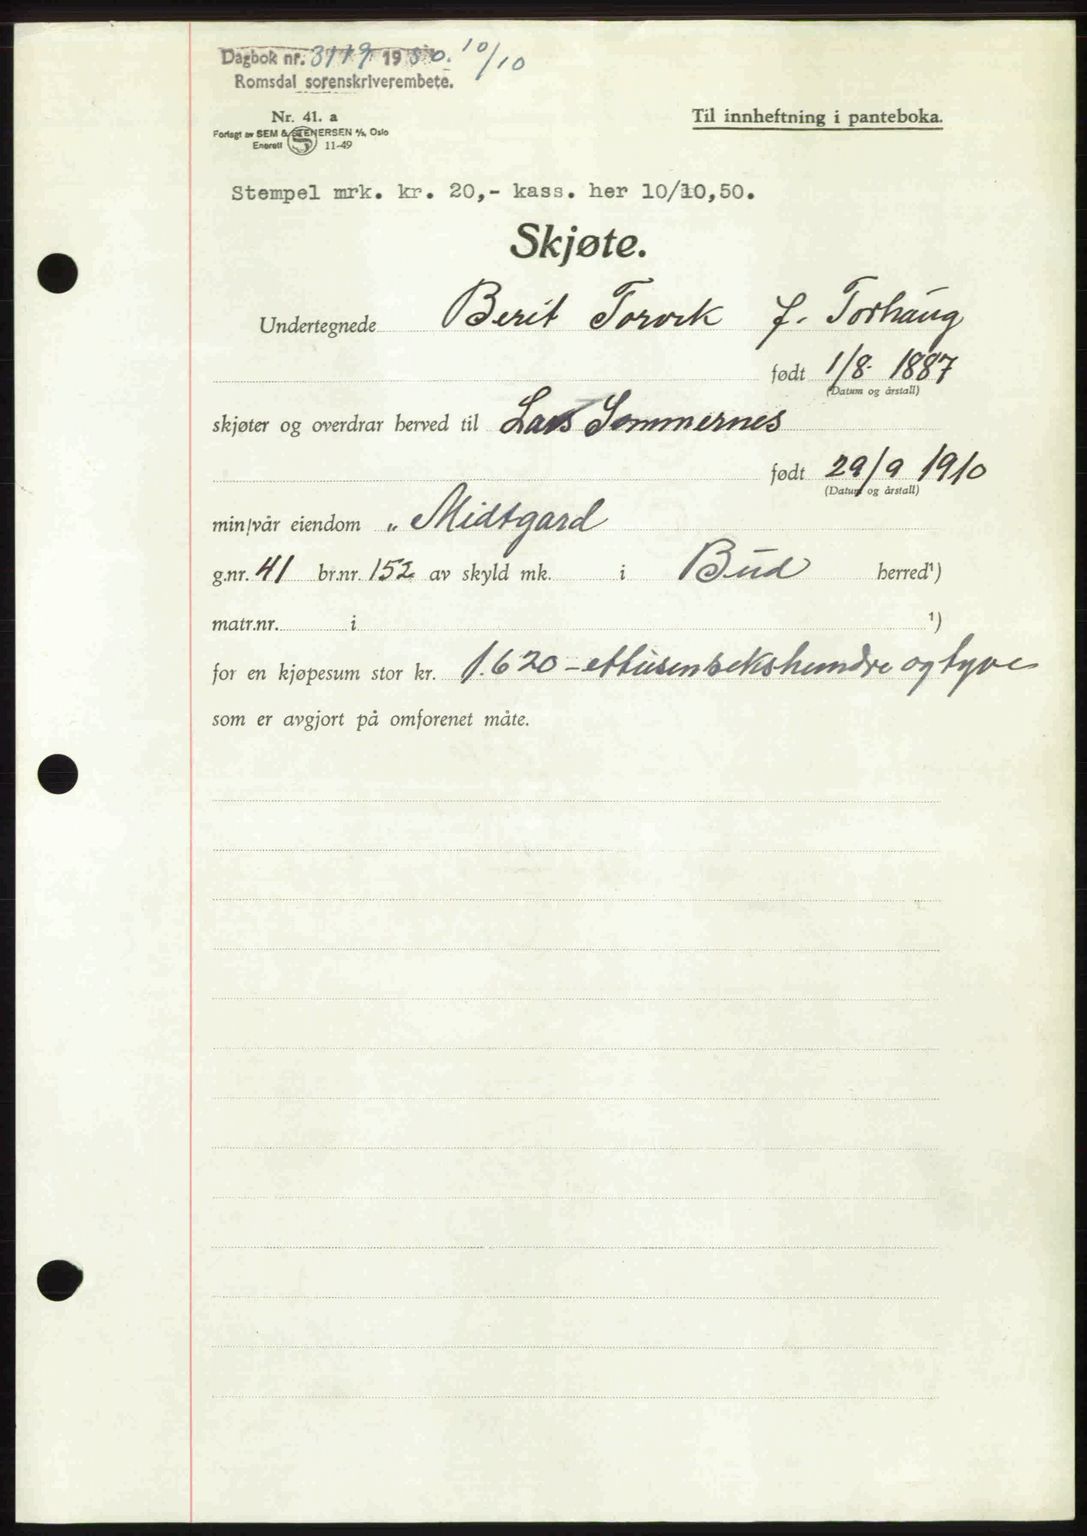 Dagbok nr. 3119 1950. 10/10
Romsdal sorenskriverembete.
Nr. 41. a
Forlagt av SEM & STENERSEN A/S, Oslo
Enerett S 11-49
Til innheftning i panteboka.
Stempel mrk. kr. 20,- kass. her 10/10,50.
Skjøte.
Undertegnede Berit Torvik f. Torhaug
født 1/8- 1887
(Datum og årstall)
skjøter og overdrar herved til Lars Sommernes
født 29/9 1910
(Datum og årstall)
min/vår eiendom „ Midtgard
g.nr. 41 br.nr. 152 av skyld mk. i Bud herred¹)
matr.nr. i ¹)
for en kjøpesum stor kr. 1.620 - ettusensekshundre og tyve
som er avgjort på omforenet måte.